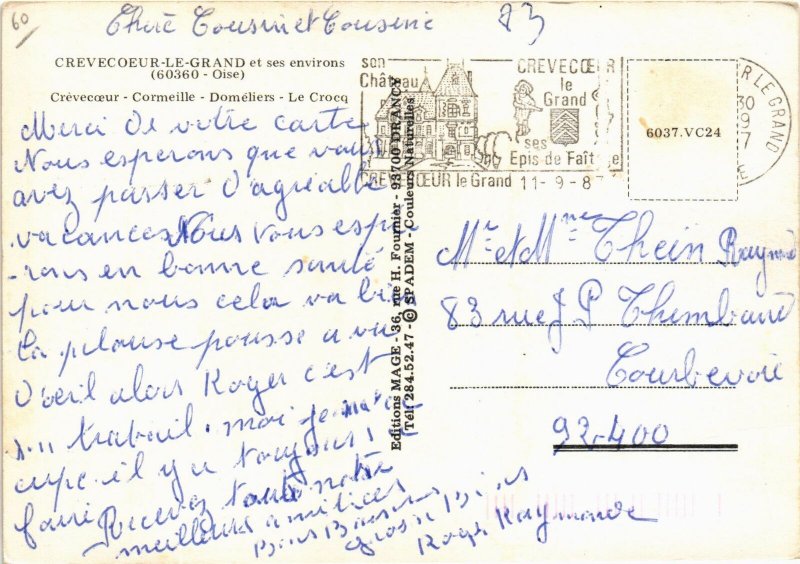 60
Cher Cousin et Cousine
CREVECOEUR-LE-GRAND et ses environs
(60360 - Oise)
Crèvecœur - Cormeille - Doméliers - Le Crocq
Merci de votre carte
Nous esperons que vous
avez passer d'agréable
vacances Nous vous espé
-rons en bonne santé
pour nous cela va bien
la plouse pousse a vu
d'oeil alors Roger c'est
travail. moi je
cupe il y a toujours
faire Recevez toute notre
meilleurs amitiés
Bons Baisers
grosse
Roger Raymonde
Editions MAGE - 36, rue H. Fournier - 93700 DRANCY
Tél. 284.52.47 - © SPADEM - Couleurs Naturelles
son
Château
CREVECŒUR
le
Grand
ses
Epis de Faîtage
CREVECŒUR le Grand 11-9-87
LE GRAND
6037.VC24
Mr et Mme Thein Raymond
83 rue J P Thimbaud
Courbevoie
92-400